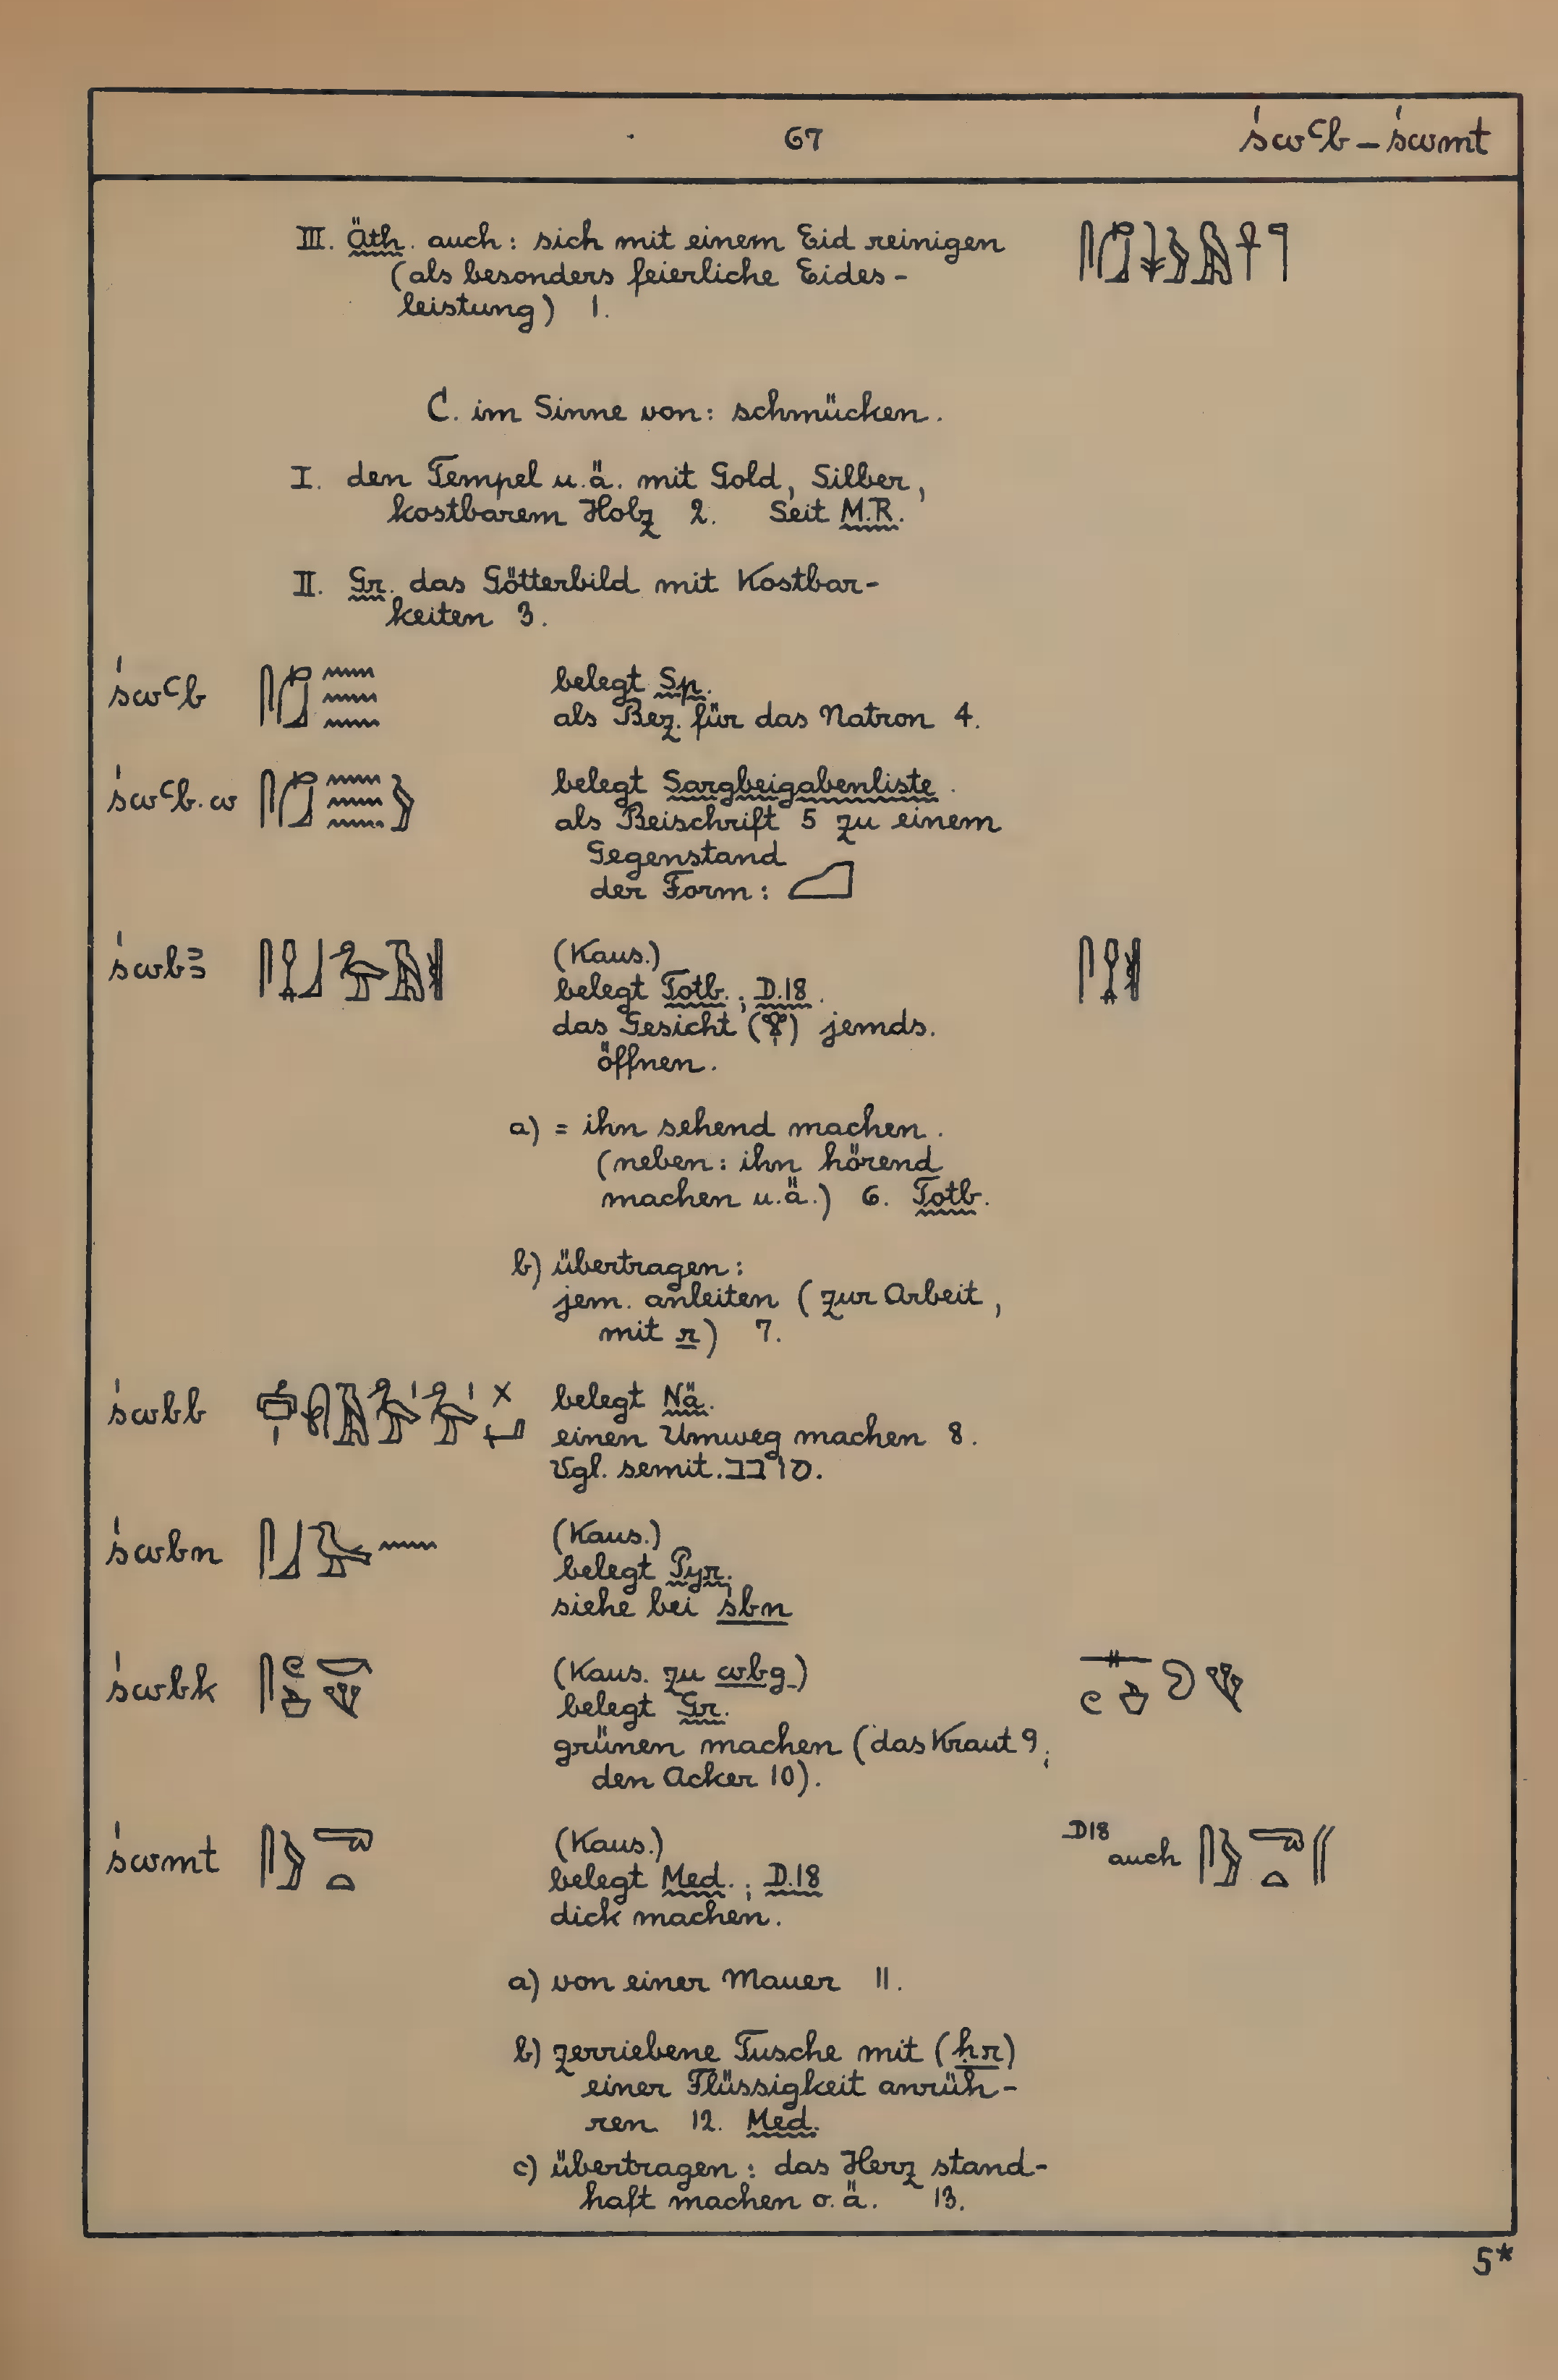 67
śwꜥb – św​mt
III. Äth. auch: sich mit einem Eid reinigen
(als besonders feierliche Eides-
leistung) 1.
C. im Sinne von: schmücken.
I. den Tempel u.ä. mit Gold, Silber,
kostbarem Holz 2. Seit M.R.
II. Gr. das Götterbild mit Kostbar-
keiten 3.
śwꜥb belegt Sp.
als Bez. für das Natron 4.
śwꜥb.w belegt Sargbeigabenliste.
als Beischrift 5 zu einem
Gegenstand
der Form:
śwbꜣ (Kaus.)
belegt Totb.; D.18.
das Gesicht (𓁷) jemds.
öffnen.
a) = ihn sehend machen.
(neben: ihn hörend
machen u.ä.) 6. Totb.
b) übertragen:
jem. anleiten (zur Arbeit,
mit r) 7.
śwbb belegt Nä.
einen Umweg machen 8.
Vgl. semit. סובב.
śwbn (Kaus.)
belegt Pyr.
siehe bei śbn
śwbk (Kaus. zu wbg)
belegt Gr.
grünen machen (das Kraut 9;
den Acker 10).
śwmt (Kaus.)
belegt Med.; D.18
dick machen.
D18
auch
a) von einer Mauer 11.
b) zerriebene Tusche mit (ḥr)
einer Flüssigkeit anrüh-
ren 12. Med.
c) übertragen: das Herz stand-
haft machen o.ä. 13.
5*